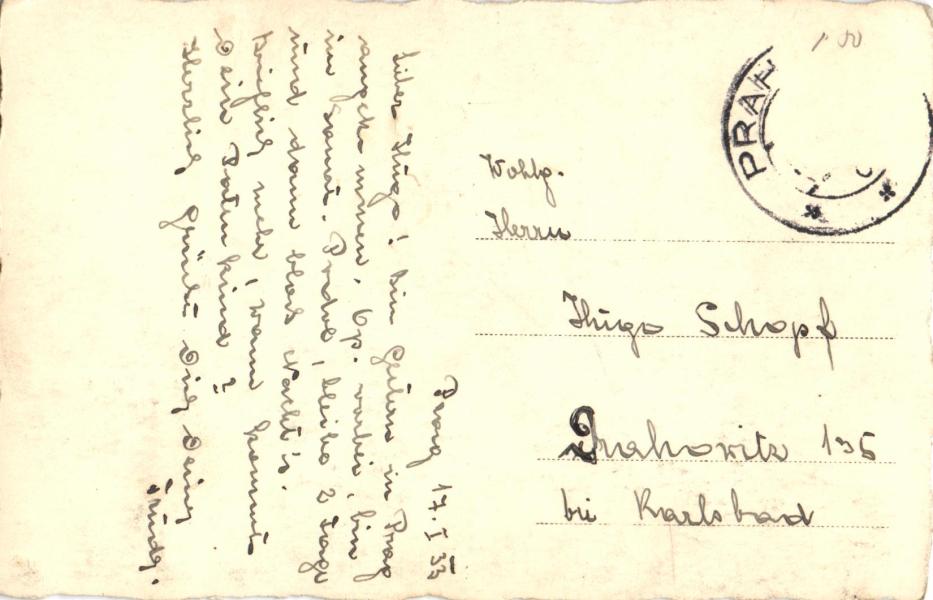 Prag 17. I 33
Lieber Hugo! bin Gestern in Prag
angekommen, 6 p. vorbei, bin
in Sanat. Podol, bleibe 2 Tage
und dann blos Nachts.
Brieflich mehr, wann kommt
Dein Patenkind?
Herzlich grüsst Dich Deine
100
PRAH
Wohlg.
Herrn
Hugo Schopf
Drahowitz 135
bei Karlsbad